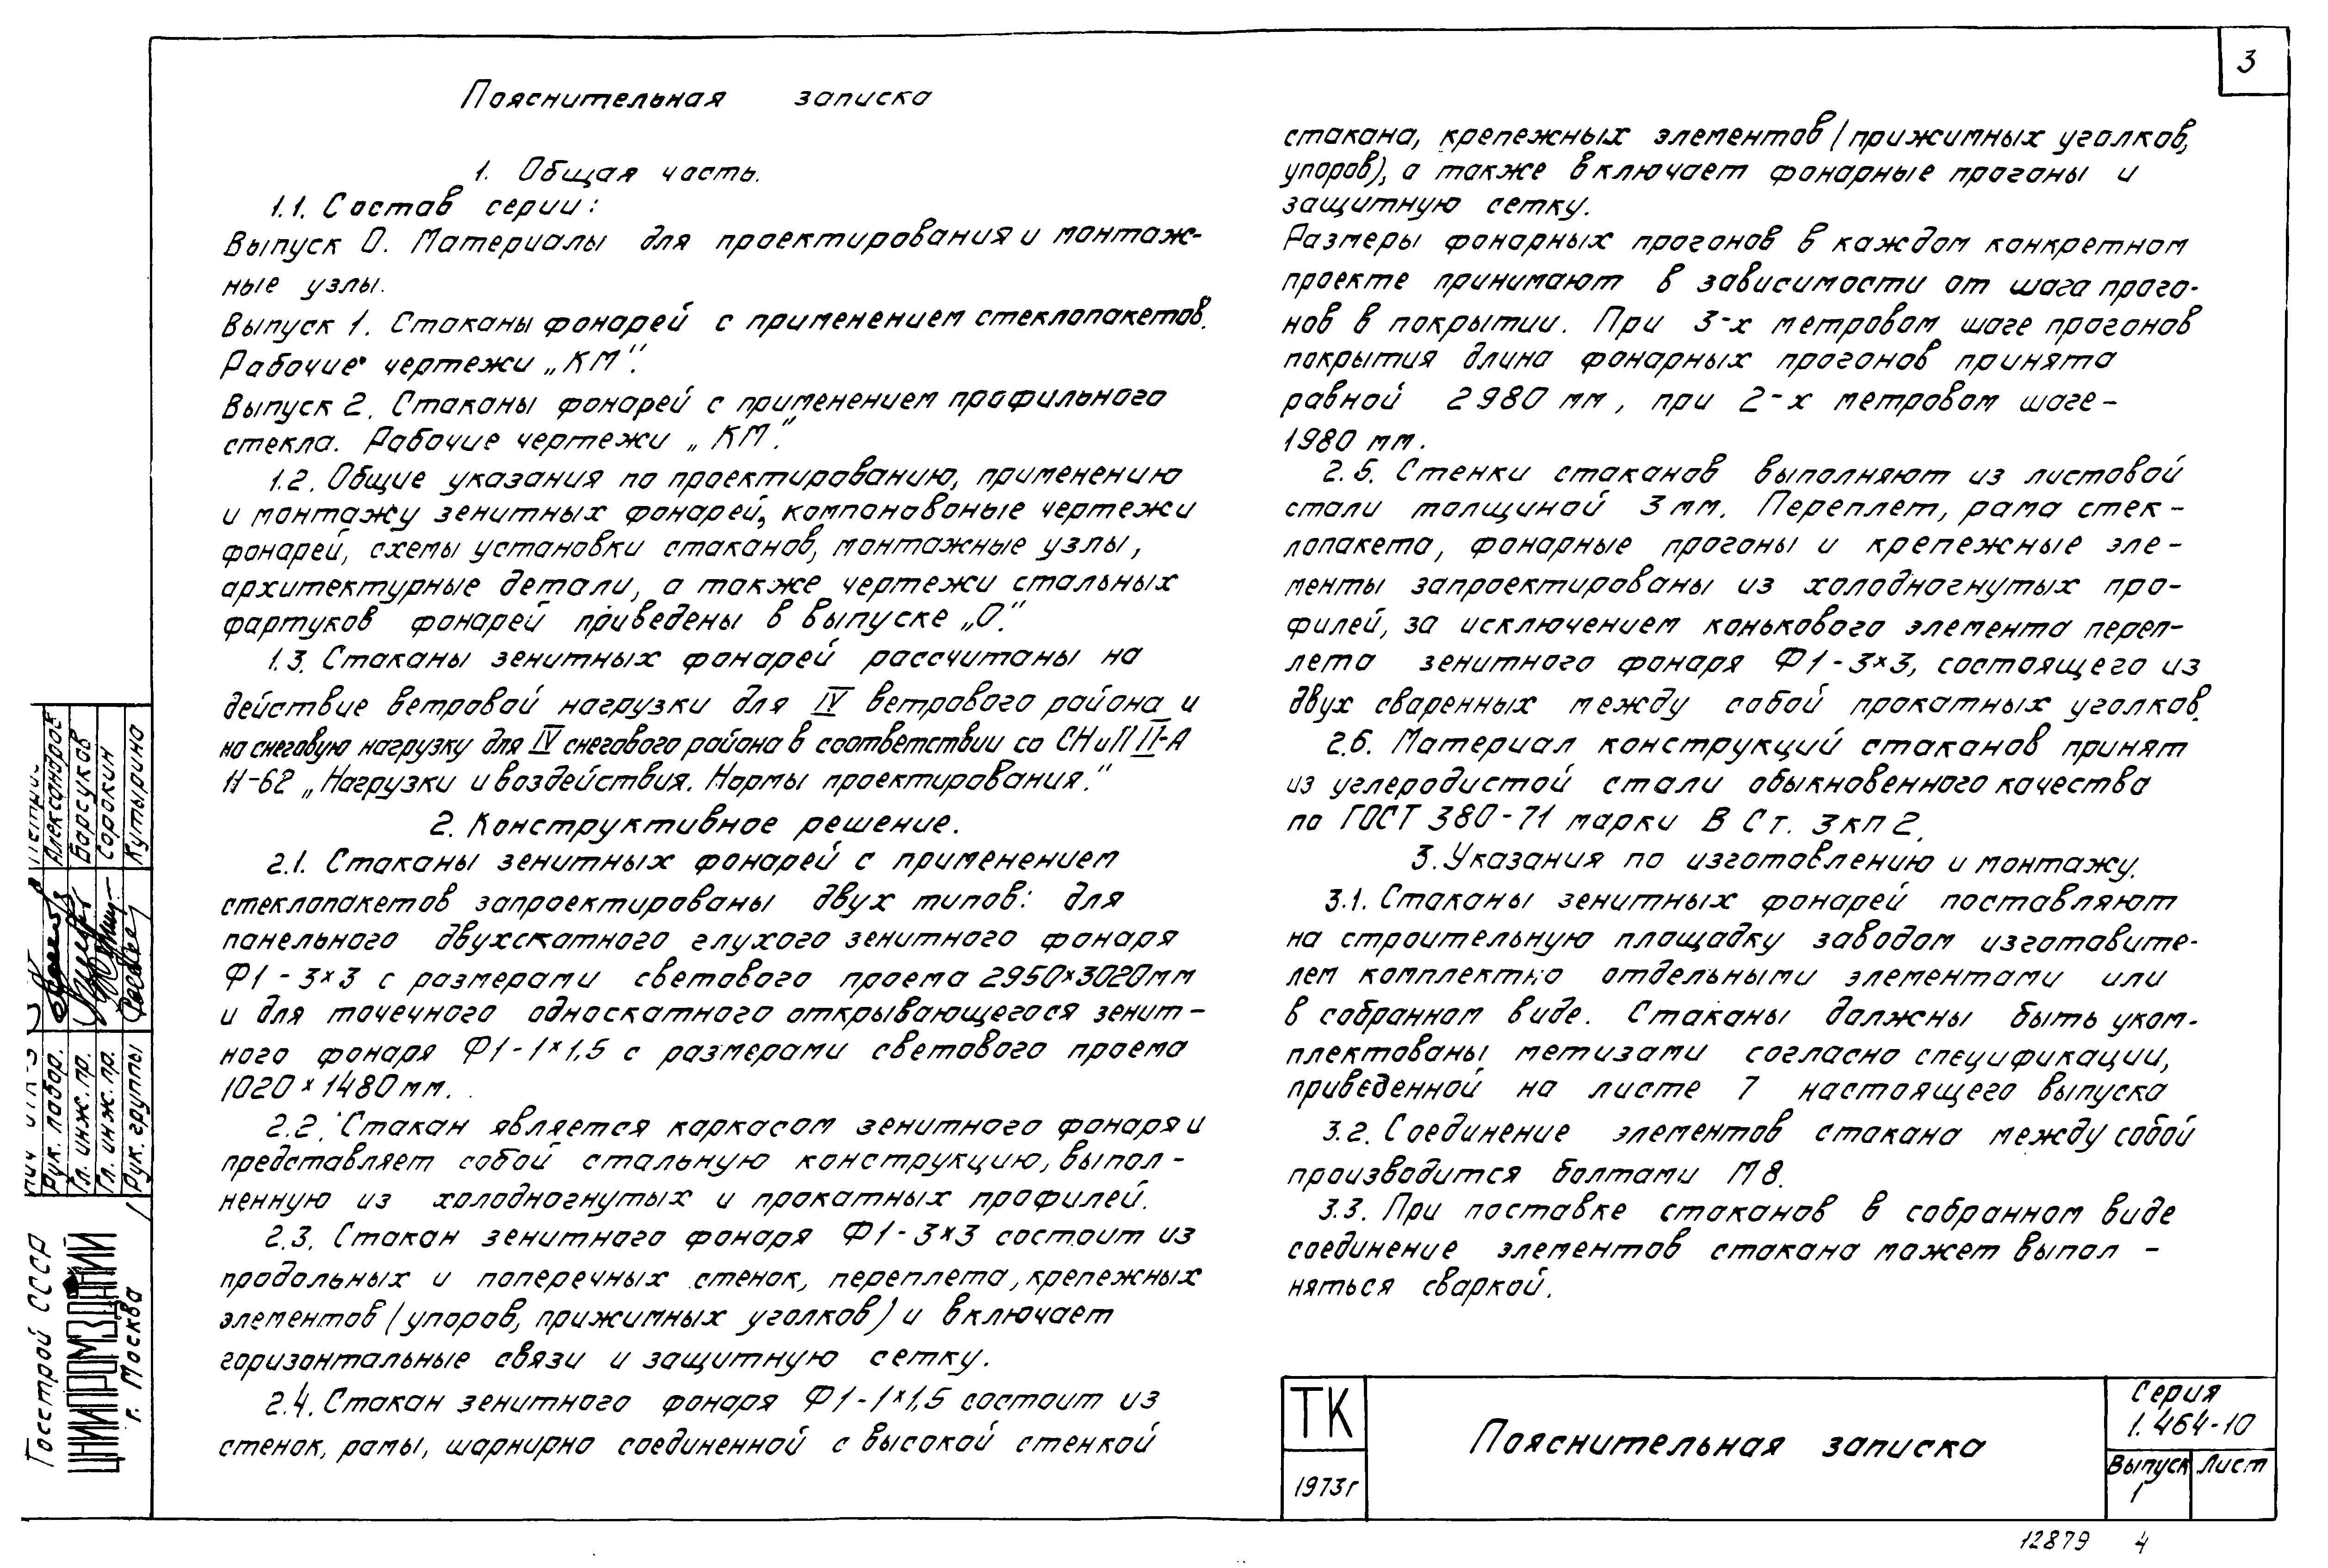 3
Пояснительная записка
1. Общая часть.
1.1. Состав серии:
Выпуск 0. Материалы для проектирования и монтаж-
ные узлы.
Выпуск 1. Стаканы фонарей с применением стеклопакетов.
Рабочие чертежи „КМ".
Выпуск 2. Стаканы фонарей с применением профильного
стекла. Рабочие чертежи „КМ".
1.2. Общие указания по проектированию, применению
и монтажу зенитных фонарей, компановоные чертежи
фонарей, схемы установки стаканов, монтажные узлы,
архитектурные детали, а также чертежи стальных
фартуков фонарей приведены в выпуске „0".
1.3. Стаканы зенитных фонарей рассчитаны на
действие ветровой нагрузки для IV ветрового района и
на снеговую нагрузку для IV снегового района в соответствии со СНиП II-А
11-62 „Нагрузки и воздействия. Нормы проектирования."
2. Конструктивное решение.
2.1. Стаканы зенитных фонарей с применением
стеклопакетов запроектированы двух типов: для
панельного двухскатного глухого зенитного фонаря
Ф1-3×3 с размерами светового проема 2950×3020мм
и для точечного односкатного открывающегося зенит-
ного фонаря Ф1-1×1,5 с размерами светового проема
1020×1480мм.
2.2. Стакан является каркасом зенитного фонаря и
представляет собой стальную конструкцию, выпол-
ненную из холодногнутых и прокатных профилей.
2.3. Стакан зенитного фонаря Ф1-3×3 состоит из
продольных и поперечных стенок, переплета, крепежных
элементов (упоров, прижимных уголков) и включает
горизонтальные связи и защитную сетку.
2.4. Стакан зенитного фонаря Ф1-1×1,5 состоит из
стенок, рамы, шарнирно соединенной с высокой стенкой
стакана, крепежных элементов (прижимных уголков,
упоров), а также включает фонарные прогоны и
защитную сетку.
Размеры фонарных прогонов в каждом конкретном
проекте принимают в зависимости от шага прого-
нов в покрытии. При 3-х метровом шаге прогонов
покрытия длина фонарных прогонов принята
равной 2980 мм, при 2-х метровом шаге-
1980 мм.
2.5. Стенки стаканов выполняют из листовой
стали толщиной 3мм. Переплет, рама стек-
лопакета, фонарные прогоны и крепежные эле-
менты запроектированы из холодногнутых про-
филей, за исключением конькового элемента переп-
лета зенитного фонаря Ф1-3×3, состоящего из
двух сваренных между собой прокатных уголков.
2.6. Материал конструкций стаканов принят
из углеродистой стали обыкновенного качества
по ГОСТ 380-71 марки В Ст. 3 кп 2.
3. Указания по изготовлению и монтажу.
3.1. Стаканы зенитных фонарей поставляют
на строительную площадку заводом изготовите-
лем комплектно отдельными элементами или
в собранном виде. Стаканы должны быть уком-
плектованы метизами согласно спецификации,
приведенной на листе 7 настоящего выпуска
3.2. Соединение элементов стакана между собой
производится болтами М8.
3.3. При поставке стаканов в собранном виде
соединение элементов стакана может выпол-
няться сваркой.
ТК
1973г
Пояснительная записка
Серия
1.464-10
Выпуск
1
Лист
12879 4
Госстрой СССР
ЦНИИПРОМЗДАНИЙ
г. Москва
Рук. лабор. Александров
Гл. инж. пр. Барсуков
Гл. инж. пр. Сорокин
Рук. группы Кутырина